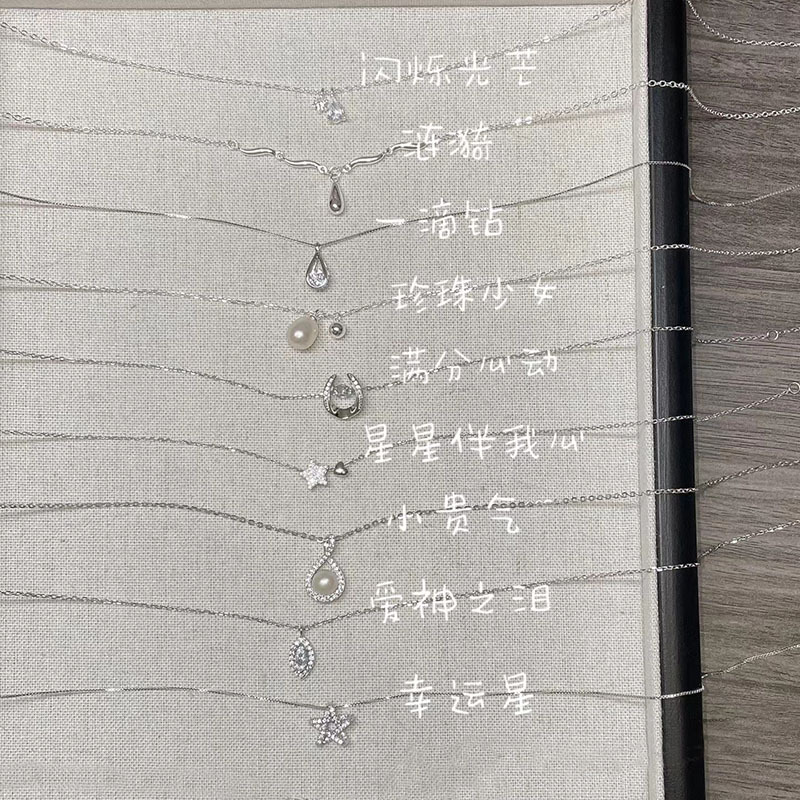 闪烁光芒
涟漪
一滴钻
珍珠少女
满分心动
星星伴我心
小贵气
爱神之泪
幸运星